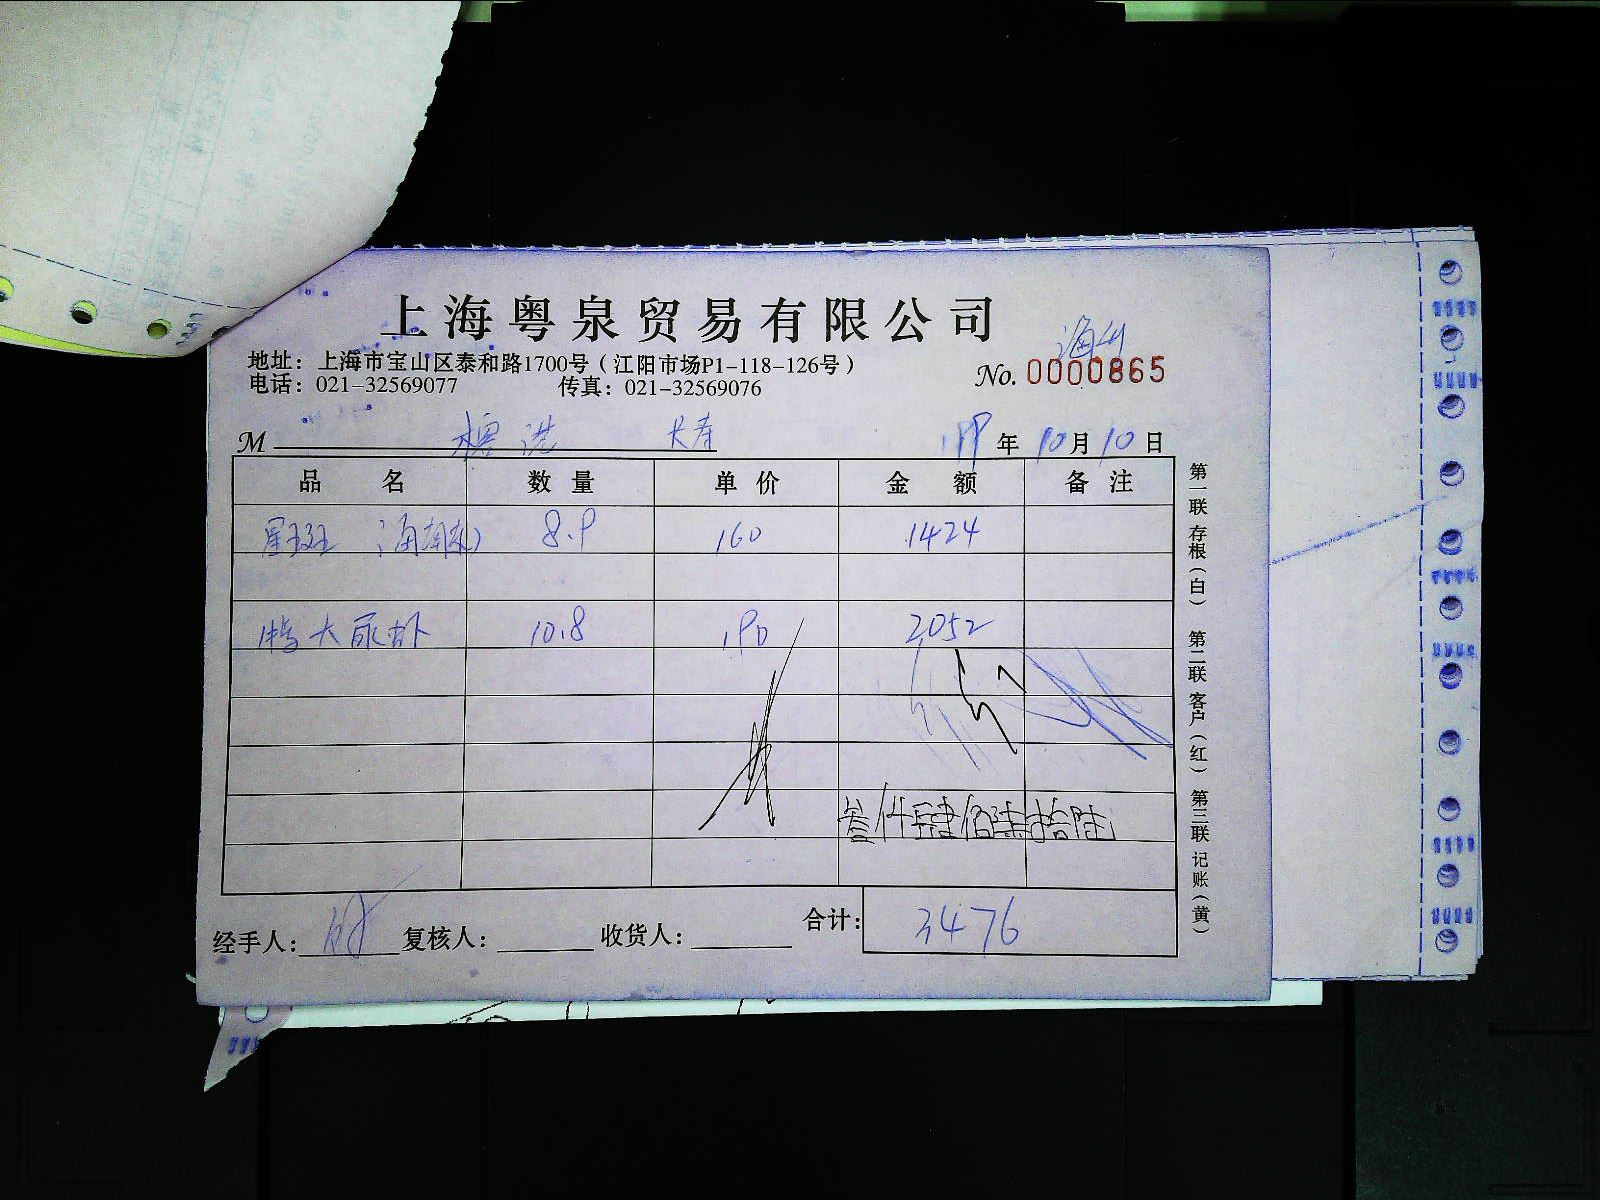 上海粤泉贸易有限公司
地址：上海市宝山区泰和路1700号（江阳市场P1-118-126号）
电话：021-32569077 传真：021-32569076
No. 0000865
M 长寿 年 10月10日
品名 数量 单价 金额 备注
星斑 8.9 160 1424
特大尿虾 10.8 190 2052
叁仟肆佰柒拾陆
合计：3476
经手人： 复核人： 收货人：
第一联 存根（白） 第二联 客户（红） 第三联 记账（黄）